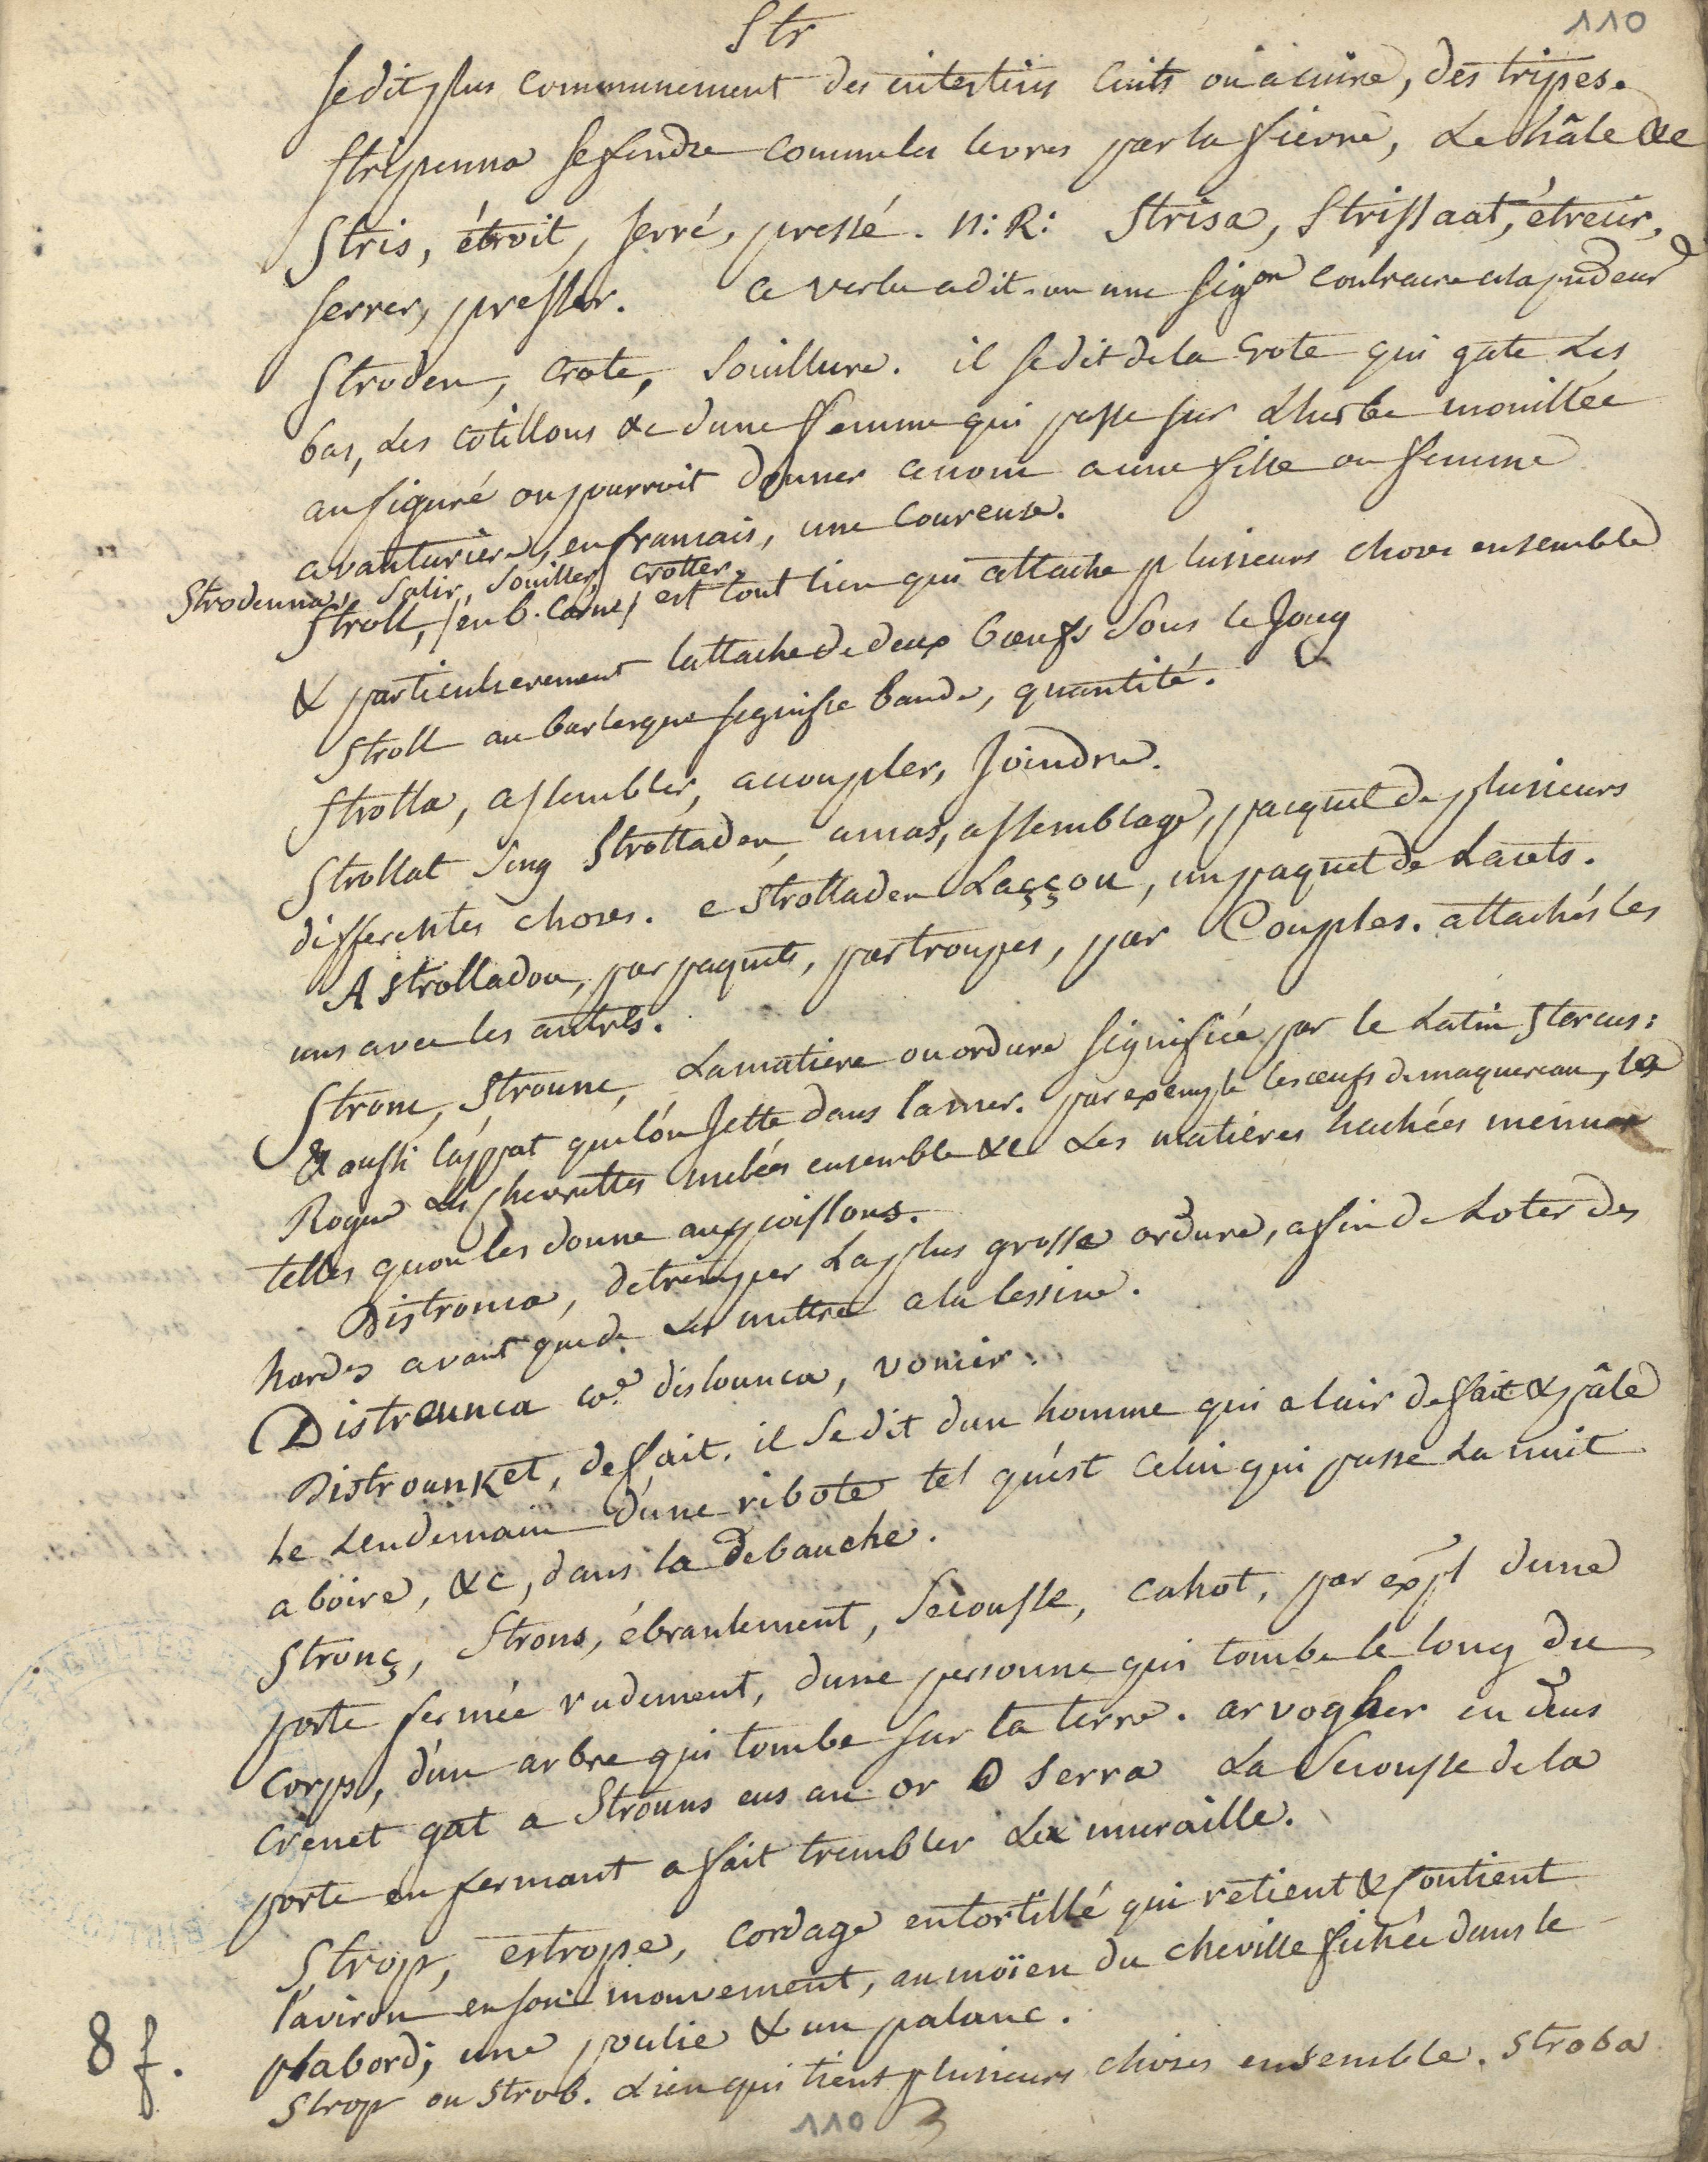 Str
110
se dit plus communement des intestins cuits ou a cuire, des tripes.
Stripenna se fendre comme les levres par la fievre, le hâle &c
Stris, étroit, serré, pressé. N: R: Strisa, Strissaat, étrecir,
serrer, presser. ce verbe a dit-on une sig.on contraire a la pudeur
Stroden, crote, souillure. il se dit de la crote qui gate les
bas, les cotillons &c dune femme qui passe sur l'herbe mouillée
au figuré on pourroit donner ce nom a une fille ou femme
avanturiere, en francais, une coureuse.
Strodenna, salir, souiller, crotter.
Stroll, /en b. Corne/ est tout lien qui attache plusieurs choses ensemble
& particulierement lattache de deux bœufs sous le Joug
Stroll au burlesque signifie bande, quantité. &
Strolla, assembler, accoupler, Joindre.
Strollat sing Strolladen, amas, assemblage, pacquet de plusieurs
differentes choses. e Strolladen Laççou, un paquet de Lacets.
A Strolladou, par paquets, par troupes, par Couples. attachés les
uns avec les autres.
Stronc, Strounc, La matiere ou ordure signifiée par le Latin Stercus:
& aussi l'appat que l'on Jette dans la mer. par exemple les œufs de maquereau, la
Rogue les chevrettes mêlées ensemble &c Les matières hachées menues
telles qu'on les donne aux poissons.
Distronca, detremper La plus grosse ordure, afin de Loter des
hardes avant que de les mettre a la lessive.
Distrounca co.e dislounca, vomir.
Distrounket, defait. il se dit dun homme qui a l'air defait & pâle
Le Lendemain d'une ribote tel qu'est celui qui passe la nuit
a boire, &c, dans la debauche.
Stronç, Strons, ébranlement, secousse, cahot, par expl dune
porte fermée rudement, dune personne qui tombe le long du
corps, d'un arbre qui tombe sur la terre. ar vogher en deus
crenet gat a Strouns eus an or o serra La secousse de la
porte en fermant a fait trembler La muraille.
Strop, estrope, cordage entortillé qui retient & soutient
l'aviron en son mouvement, au moïen du cheville fichée dans le
plabord; une poulie & un palanc.
Strop ou Strob. Lien qui tient plusieurs choses ensemble. Stroba
8 f.
110